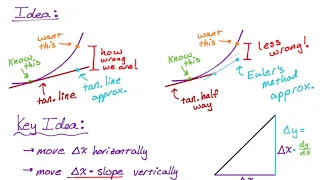 Idea:
want this
know this
how wrong we are!
tan. line
tan. line approx.
want this
know this
less wrong!
Euler's method approx.
tan. half way
Key Idea:
→ move Δx horizontally
→ move Δx · slope vertically
Δy =
Δx · dy/dx
Δx